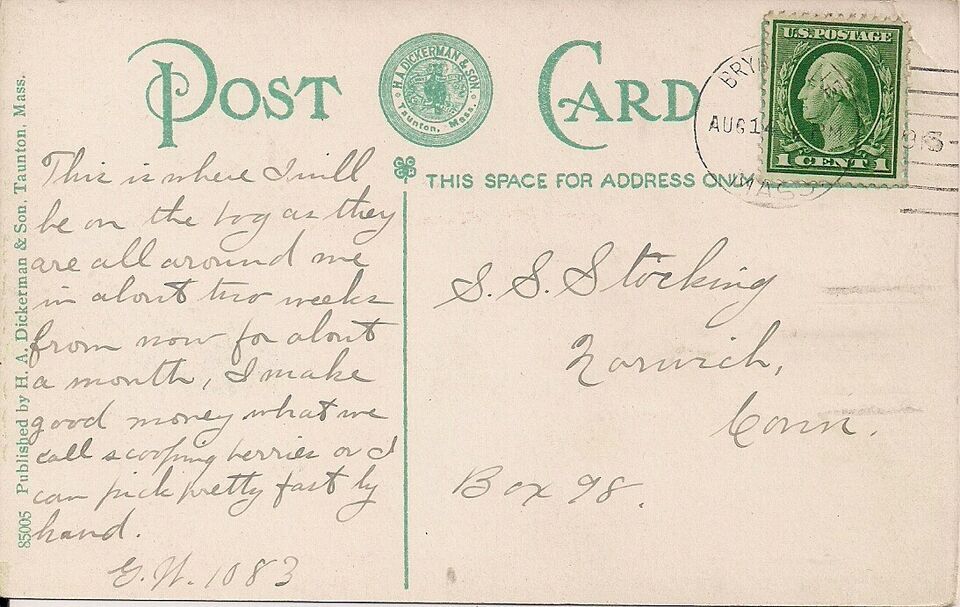 POST CARD
H.A. DICKERMAN & SON.
Taunton, Mass.
U.S. POSTAGE
1 CENT 1
AUG 14
MASS
THIS SPACE FOR ADDRESS ONLY
This is where I will
be on the bog as they
are all around me
in about two weeks
from now for about
a month, I make
good money what we
call scooping berries or I
can pick pretty fast by
hand.
G.W. 1083
S. S. Stocking
Norwich,
Conn.
Box 98.
85005 Published by H. A. Dickerman & Son, Taunton, Mass.